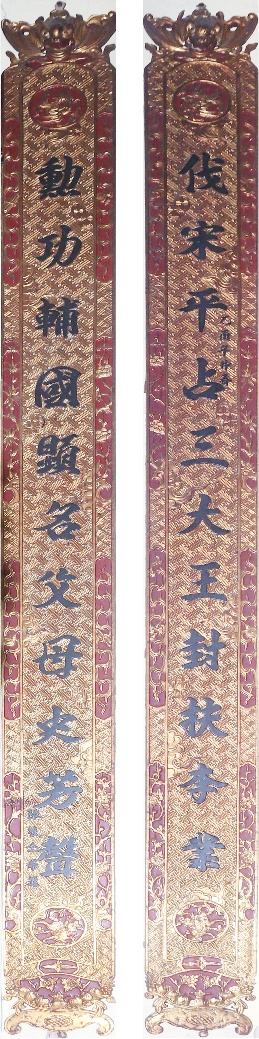 伐宋平占三大王封扶李業
勳功輔國顯名父母史芳譽